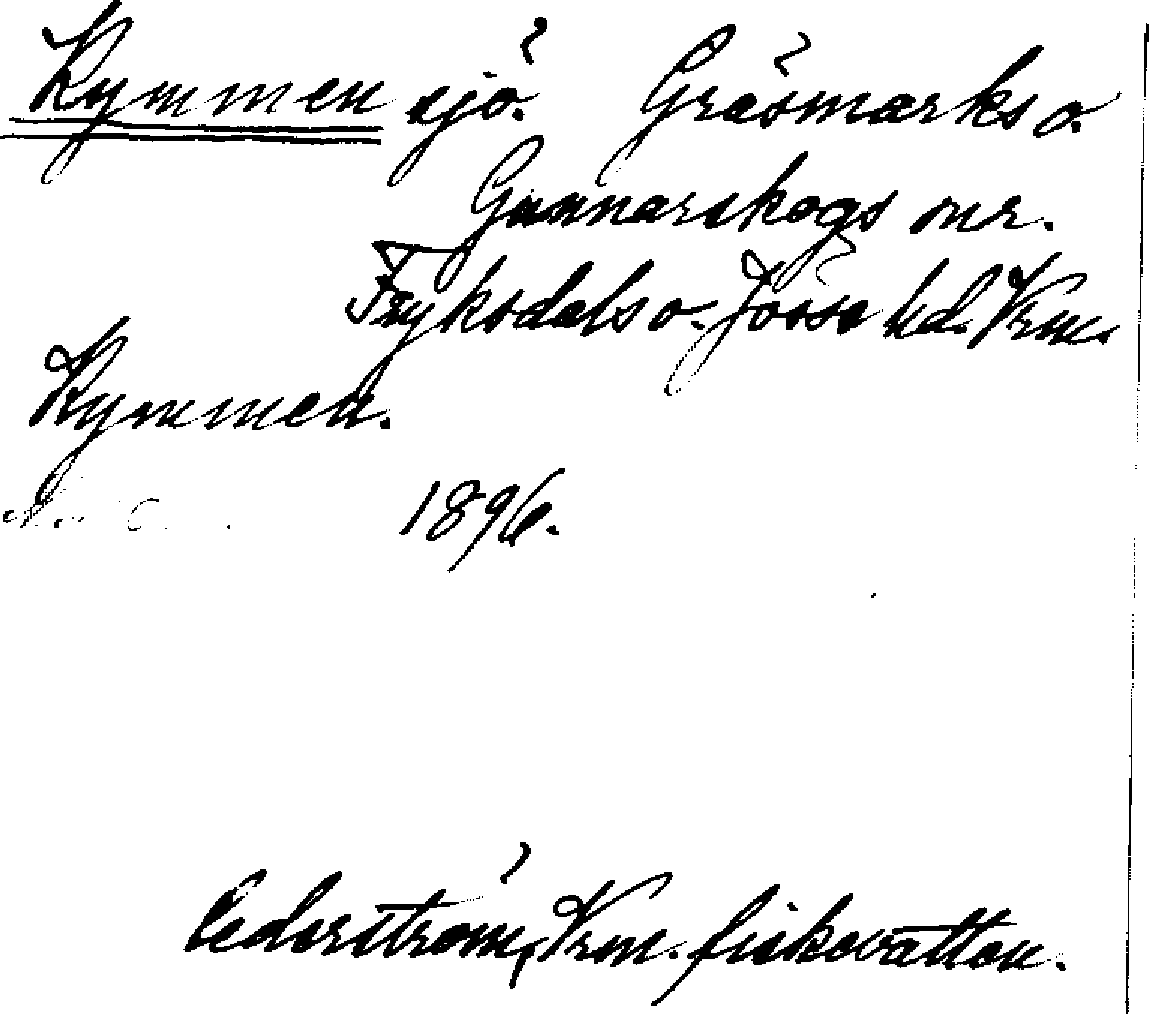 Kymmen sjö. Gräsmarks o.
Gunnarskogs snr.
Fryksdals o. Jösse hd. Vrm.
Kymmen.
1896.
Cederström, Vrm. fiskevatten.